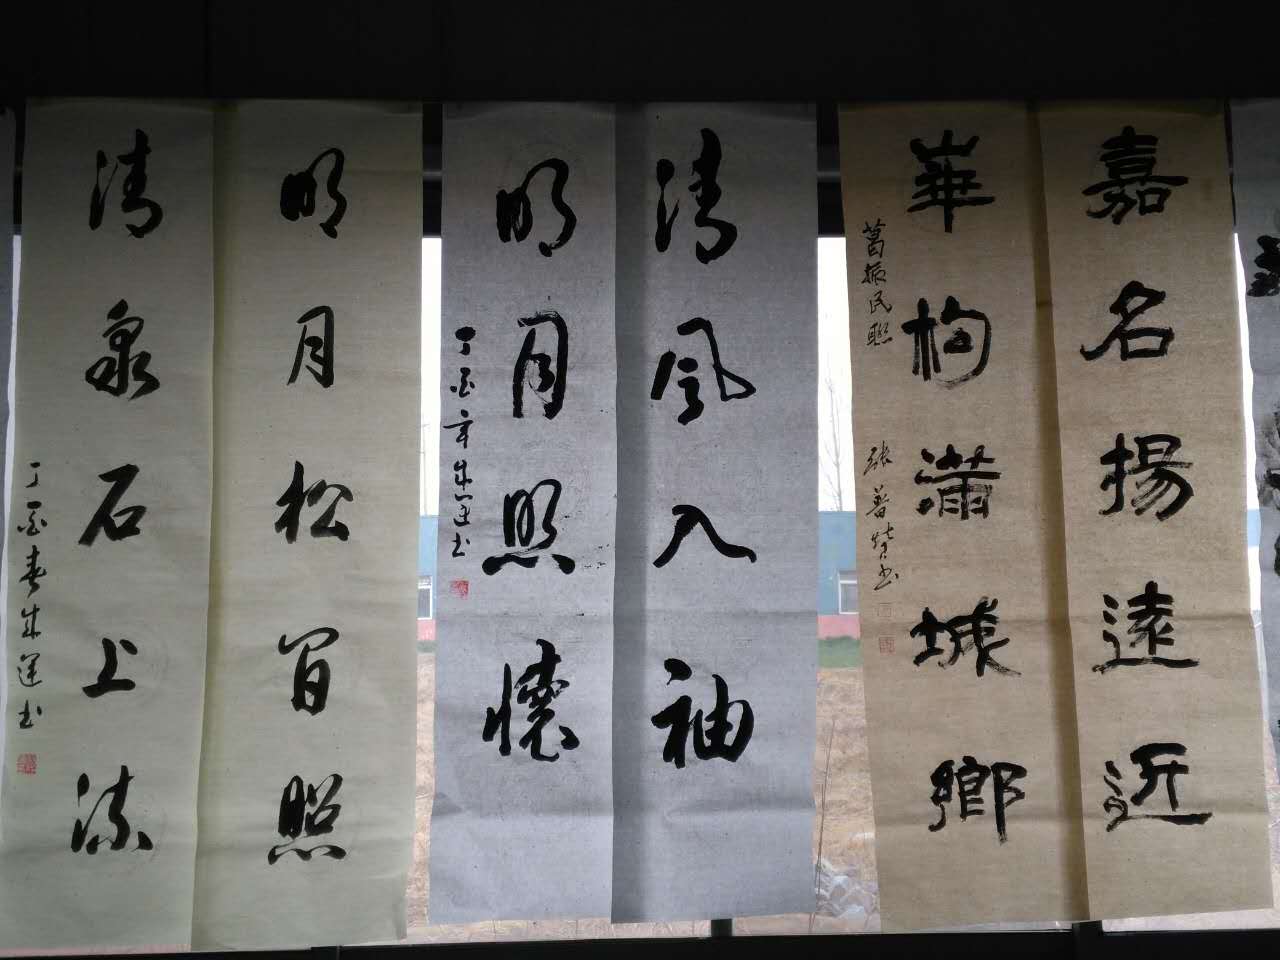 嘉名揚遠近
華枸滿城鄉
葛振民聯
清風入袖
明月照懷
丁酉年朱運书
明月松间照
清泉石上流
丁酉春朱運书